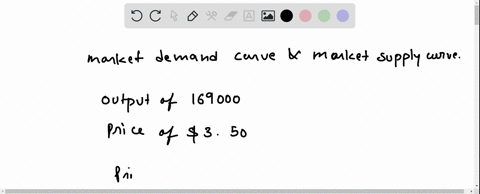 market demand curve & market supply curve.
output of 169000
Price of $3.50
Pri